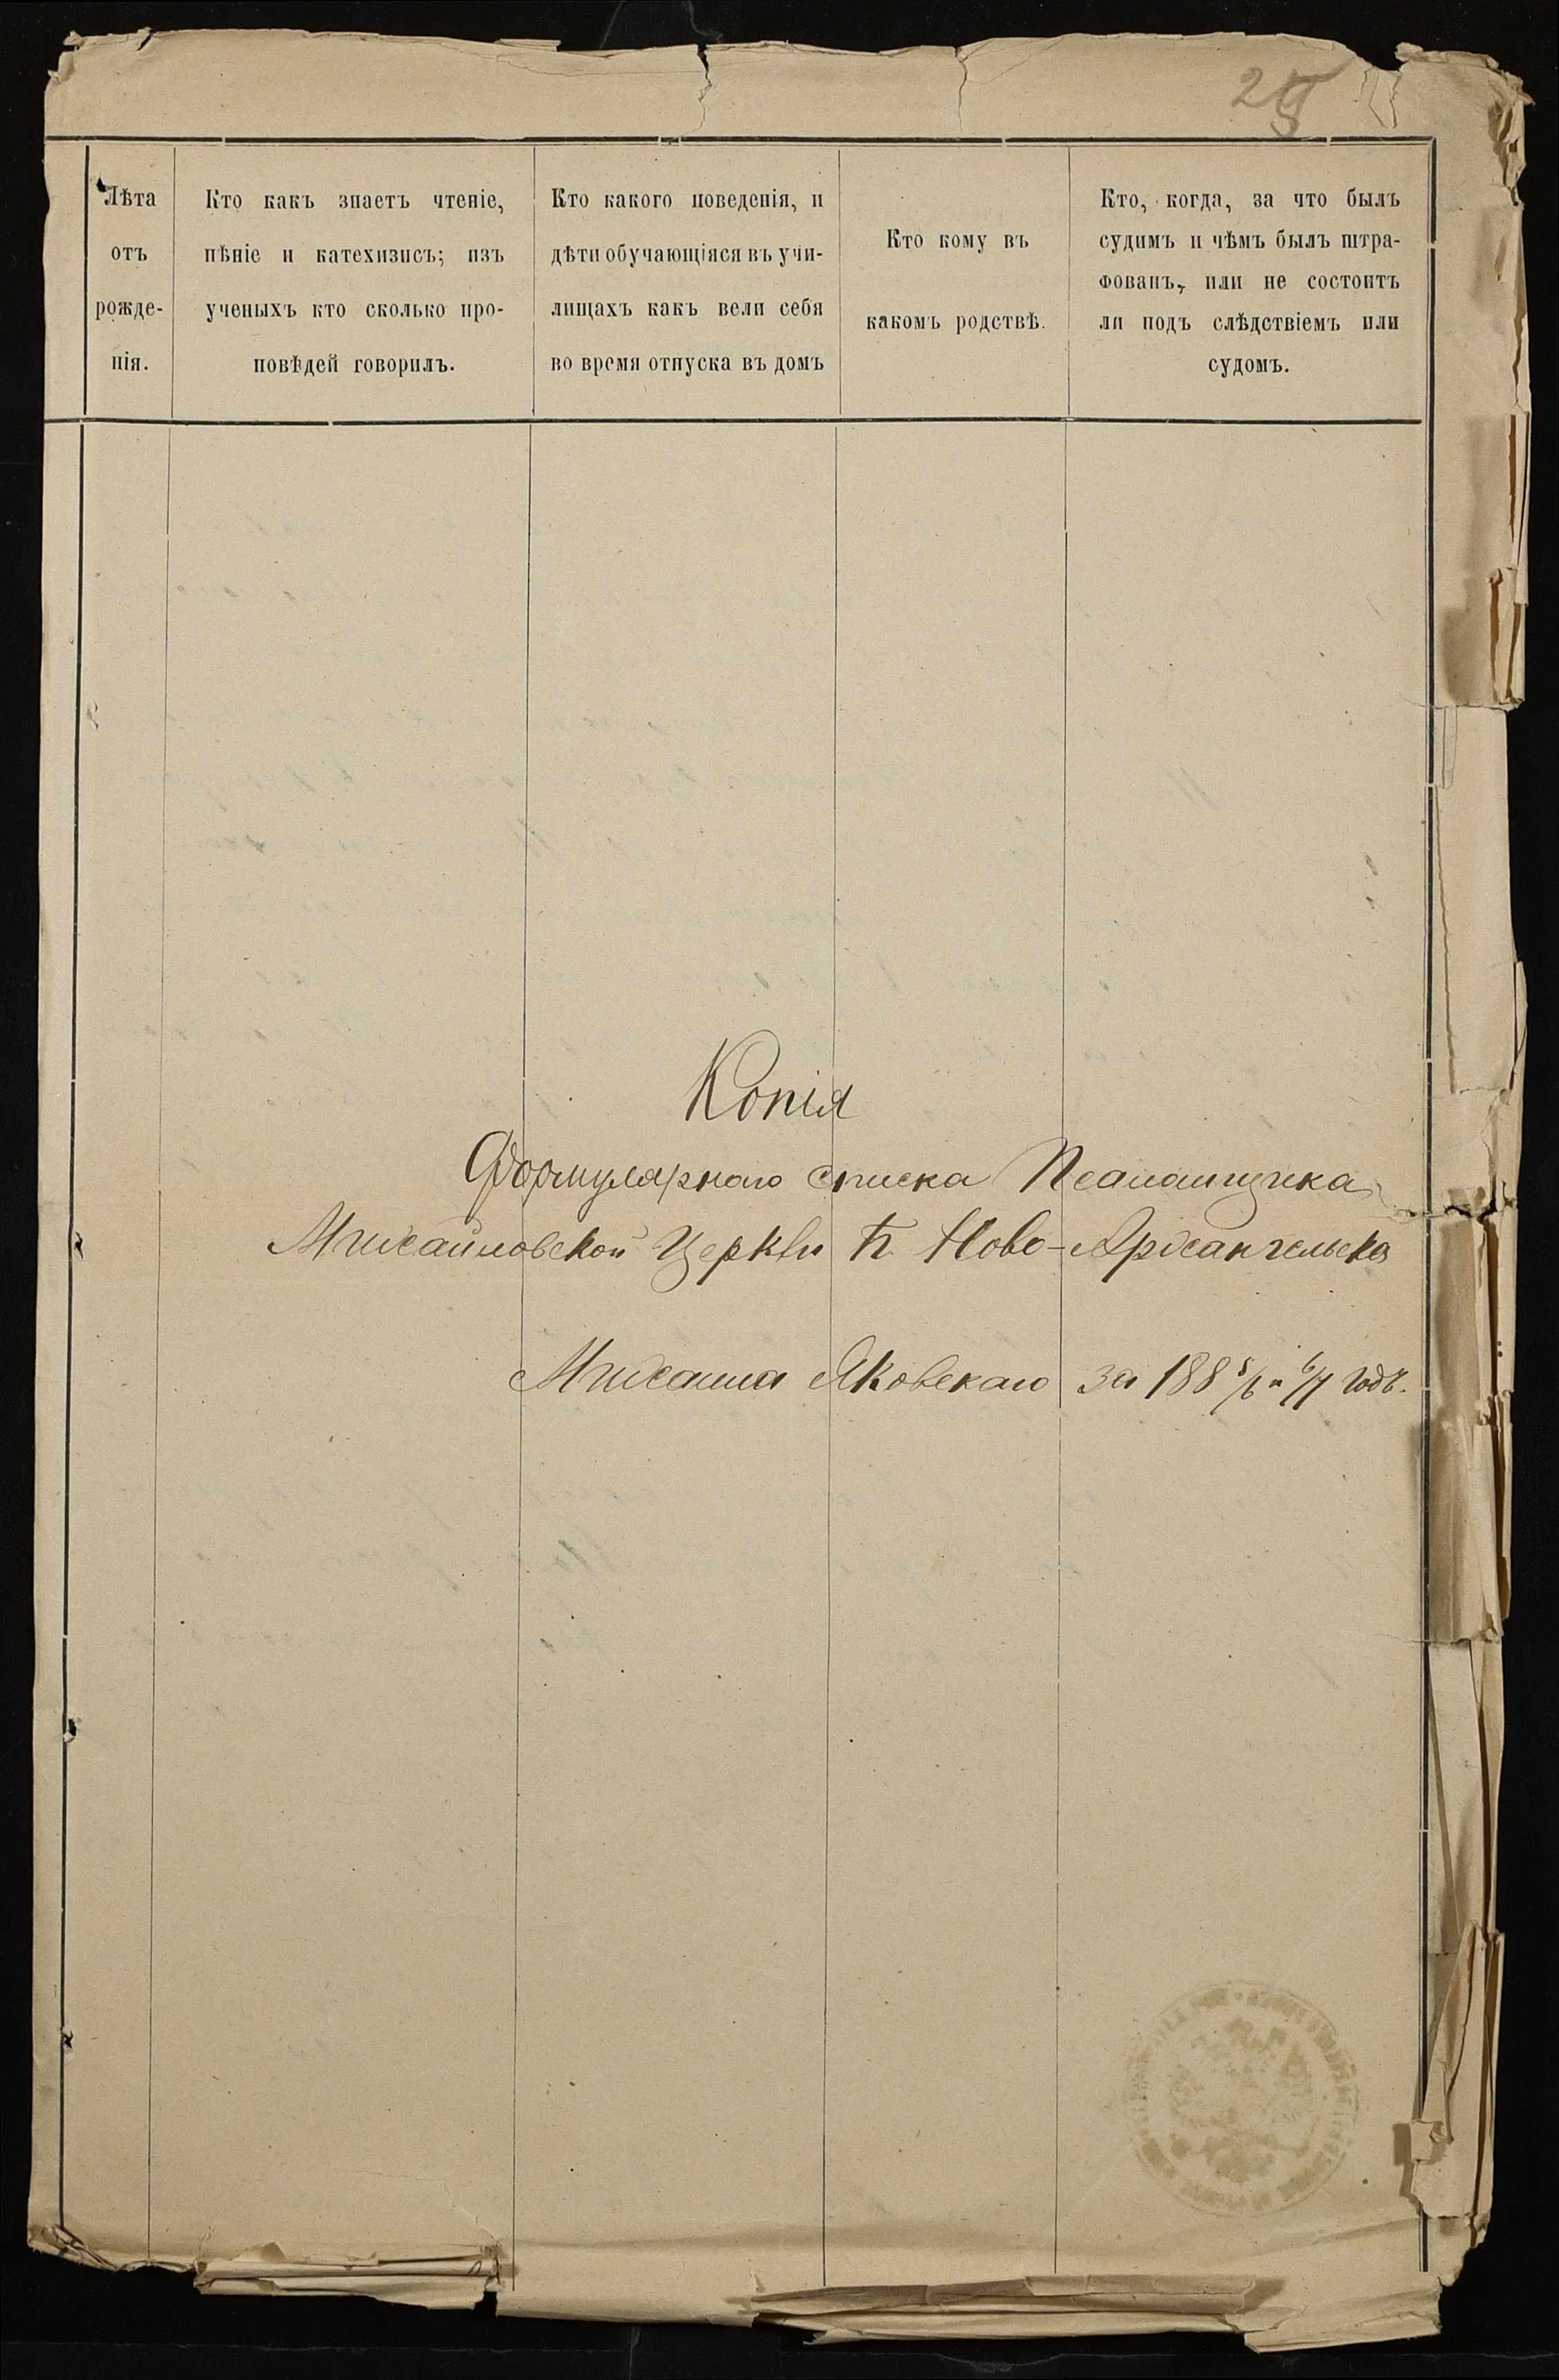 Лѣта
отъ
рожде-
нія.
Кто какъ знаетъ чтеніе,
пѣніе и катехизисъ; изъ
ученыхъ кто сколько про-
повѣдей говорилъ.
Кто какого поведенія, и
дѣти обучающіяся въ учи-
лищахъ какъ вели себя
во время отпуска въ домъ
Кто кому въ
какомъ родствѣ.
Кто, когда, за что былъ
судимъ и чѣмъ былъ штра-
фованъ, или не состоитъ
ли подъ слѣдствіемъ или
судомъ.
Копія
Формулярнаго списка Псаломщика
Михайловской Церкви Ново-Архангельска
Михаила Яковскаго за 188 5/6 и 6/7 годъ.